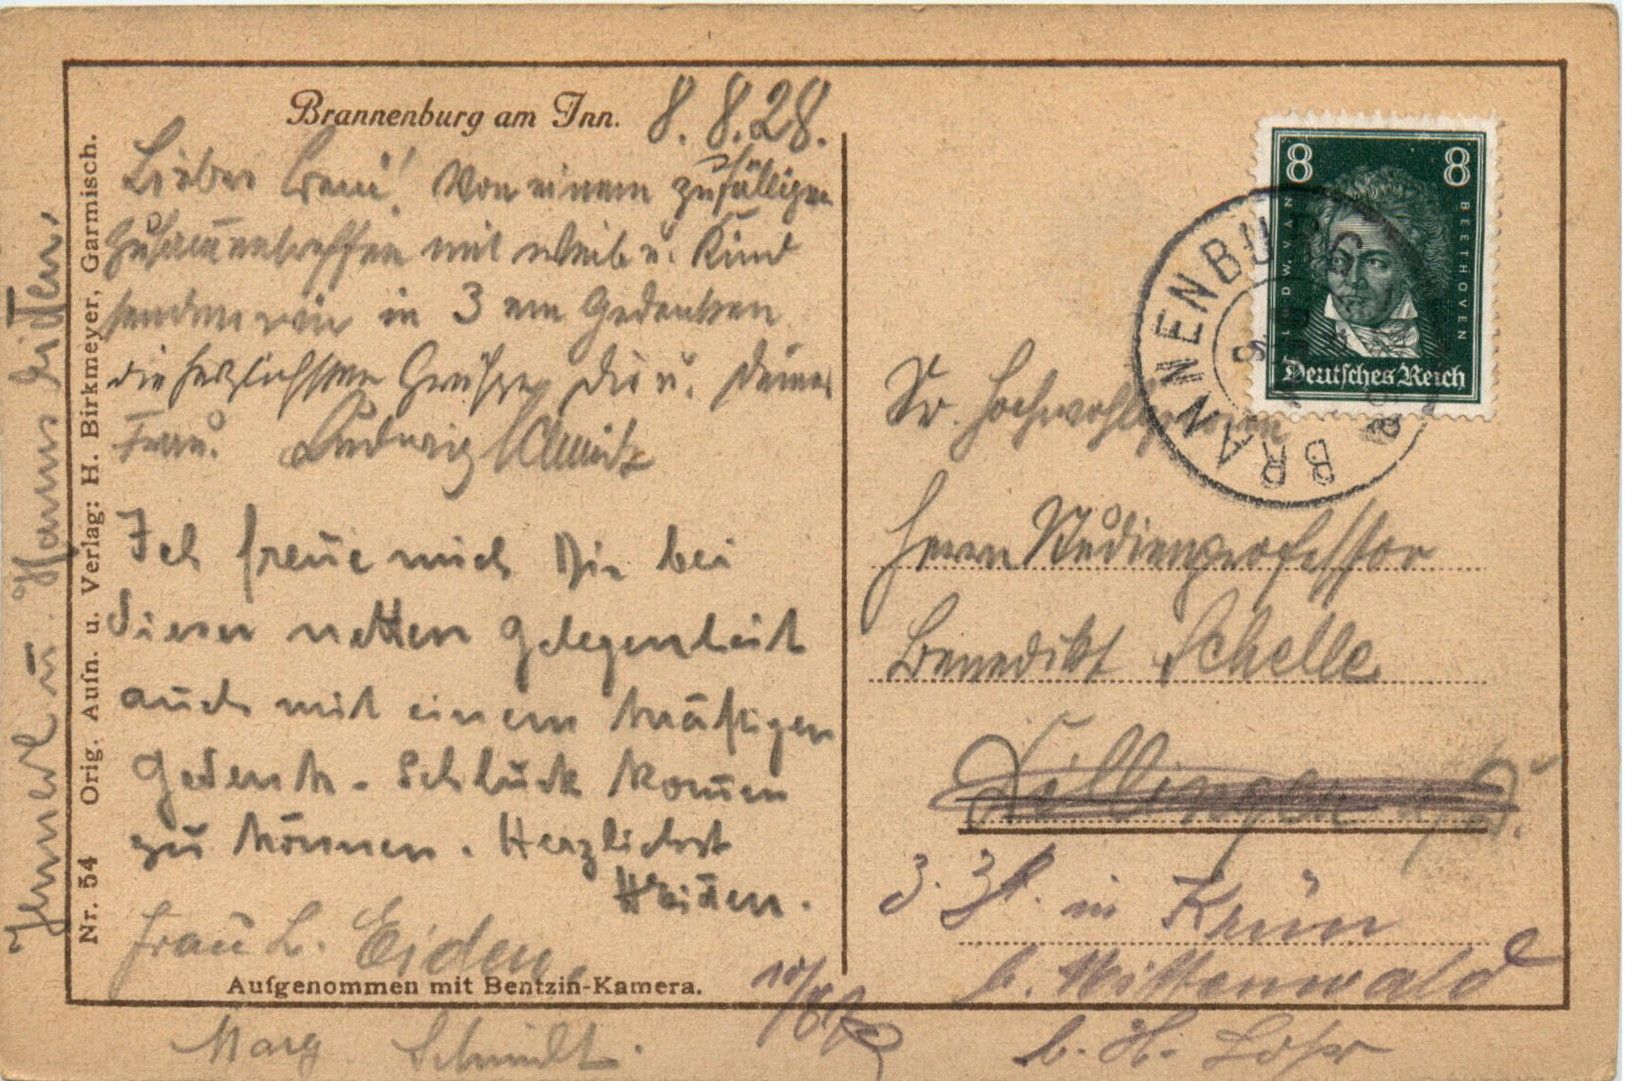 Brannenburg am Inn. 8.8.28.
Lieber Beni! Von einem zufälligen
Zusammentreffen mit Weib u. Kind
senden wir in 3 em Gedenken
die herzlichsten Grüße, Dir u. Deiner
Frau. Ludwig Schmidt
Ich freue mich Dir bei
dieser netten Gelegenheit
auch mit einem kräftigen
Gedenk-Schluck kommen
zu können. Herzlichst
HEiden.
Frau L. Eiden.
Aufgenommen mit Bentzin-Kamera.
Marg. Schmidt.
u. Hanns Eiden,
Nr. 54 Orig. Aufn. u. Verlag: H. Birkmeyer, Garmisch.
8 8
LUDW. VAN BEETHOVEN
Deutsches Reich
BRANNENBURG
Sr. Hochwohlgeboren
Herrn Studienprofessor
Benedikt Schelle
Dillingen a/D.
z. Zt. in Krün
b. Mittenwald
b. H. Lohr